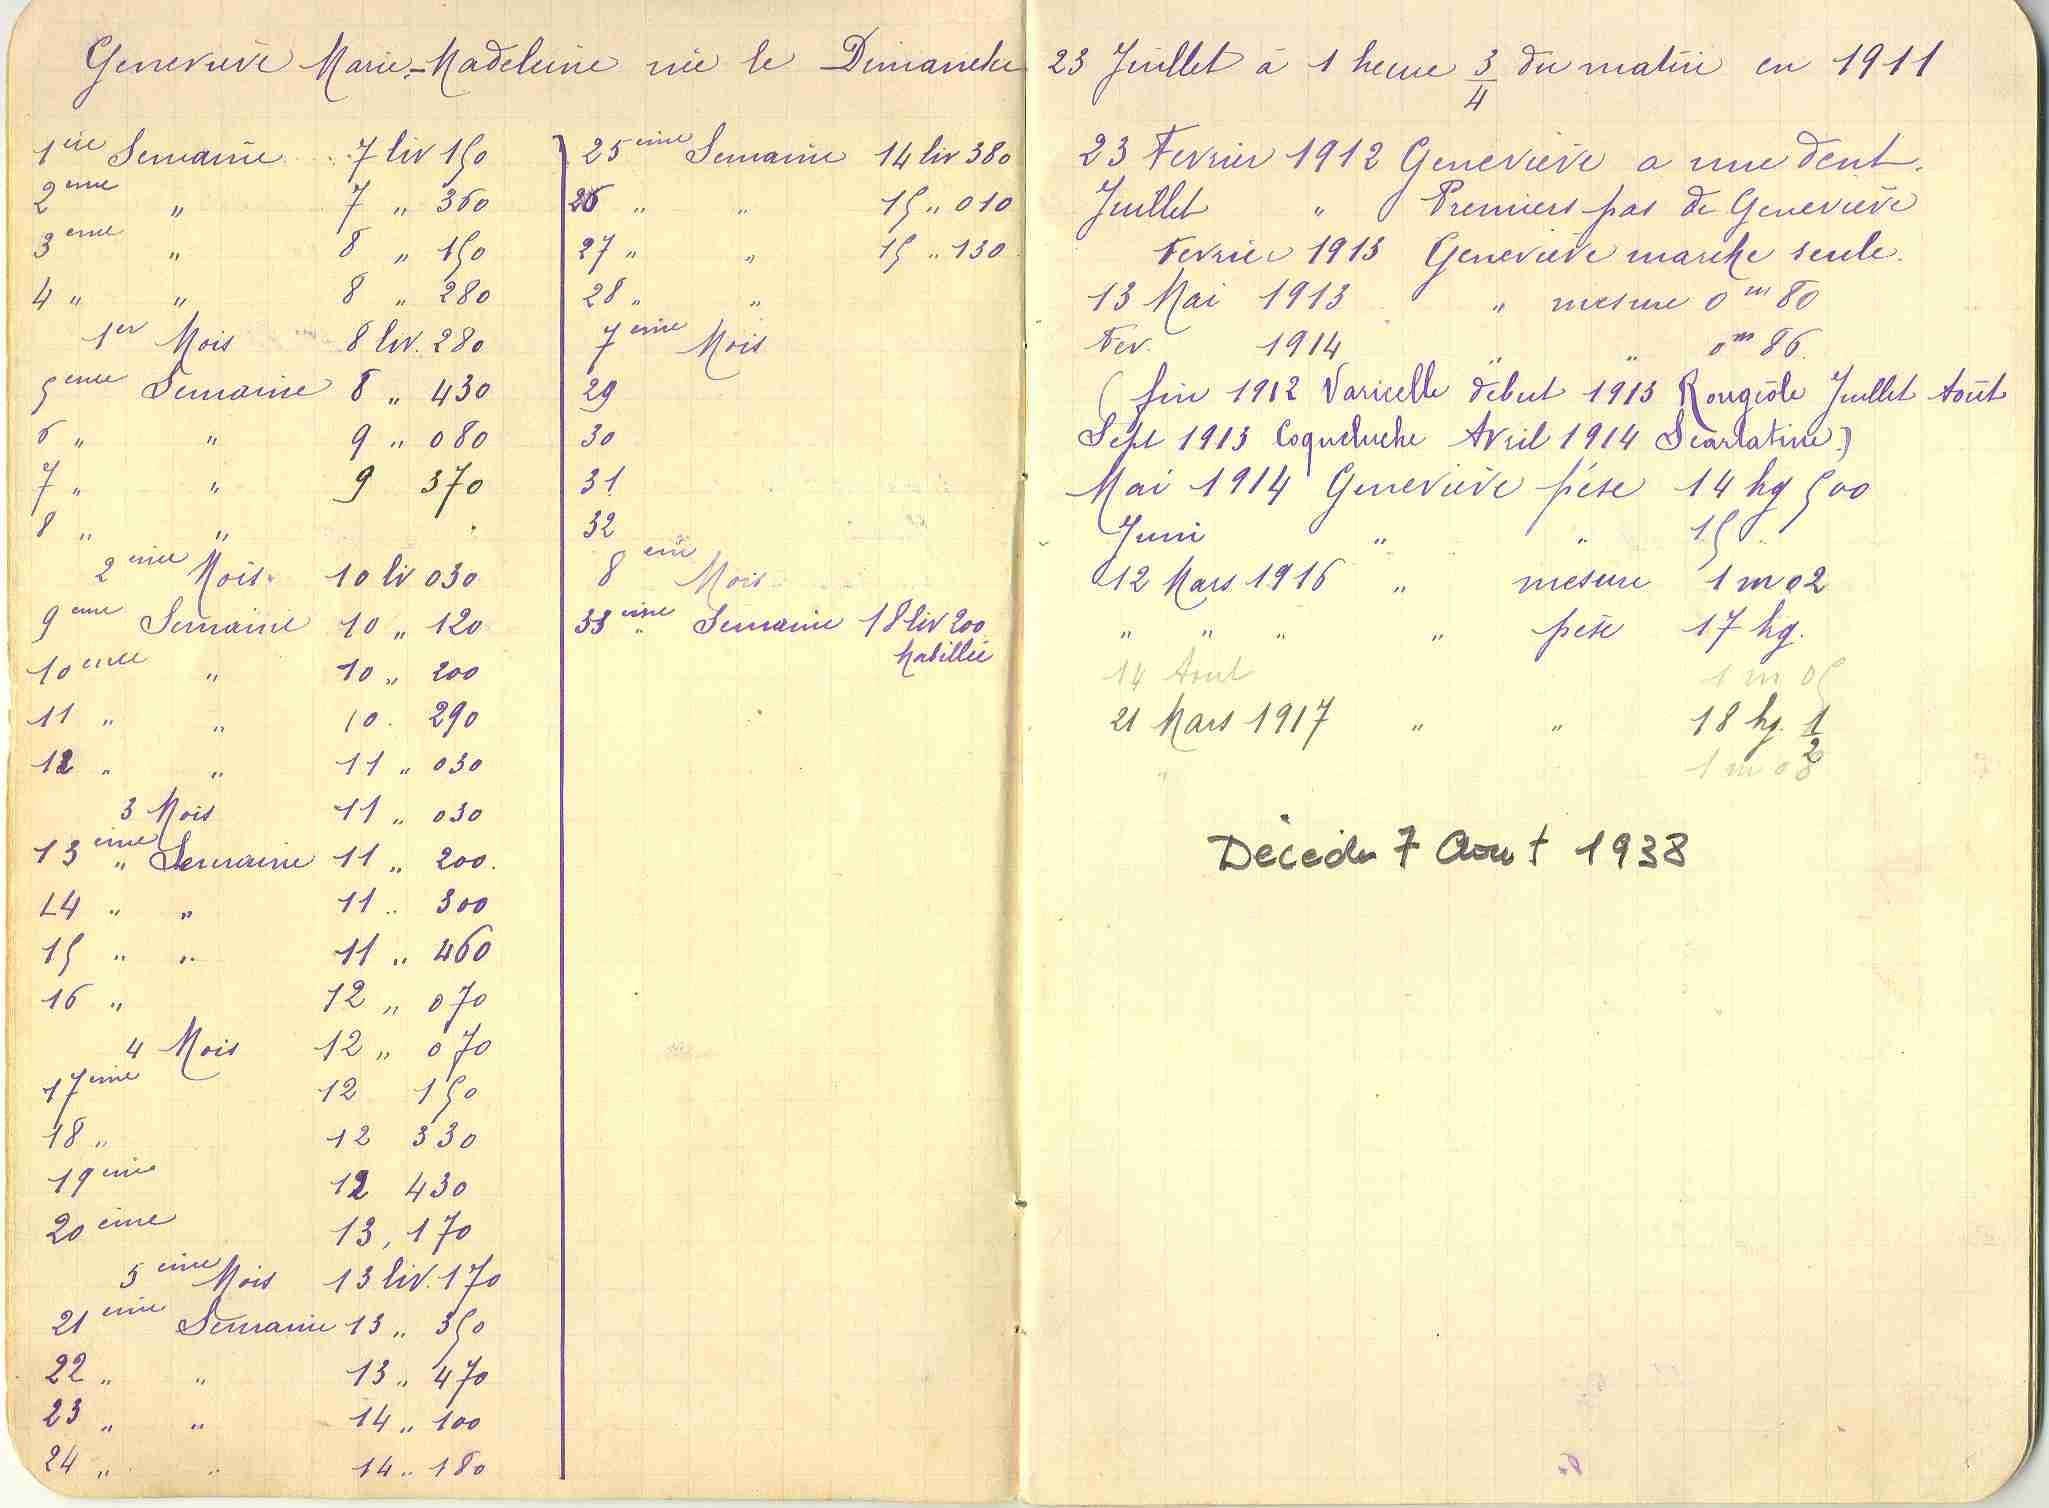 Geneviève Marie-Madeleine née le Dimanche 23 Juillet à 1 heure 3/4 du matin en 1911
1ère Semaine 7 liv 150
2ème " 7 " 360
3ème " 8 " 150
4 " " 8 " 280
1er Mois 8 liv. 280
5ème Semaine 8 " 430
6 " " 9 " 080
7 " " 9 370
8 " "
2ème Mois 10 liv 030
9ème Semaine 10 " 120
10ème " 10 " 200
11 " " 10 . 290
12 " " 11 " 030
3 Mois 11 " 030
13ème " Semaine 11 " 200.
14 " " 11 " 300
15 " " 11 " 460
16 " 12 " 070
4 Mois 12 " 070
17ème 12 150
18 " 12 330
19ème 12 430
20ème 13, 170
5ème Mois 13 liv. 170
21ème Semaine 13 " 350
22 " " 13 " 470
23 " " 14 " 100
24 " " 14 " 180
25ème Semaine 14 liv 380
26 " " 15 " 010
27 " " 15 " 130
28 " "
7ème Mois
29
30
31
32
8ème Mois
33ème " Semaine 18 liv 200
habillée
23 Fevrier 1912 Geneviève a une dent.
Juillet " Premiers pas de Geneviève
Fevrier 1913 Geneviève marche seule.
13 Mai 1913 " mesure 0 m 80
Fev. 1914 " " 0 m 86.
(fin 1912 Varicelle début 1913 Rougeôle Juillet Août
Sept 1913 Coqueluche Avril 1914 Scarlatine.)
Mai 1914 Geneviève pèse 14 kg 500
Juin " " 15 "
12 Mars 1916 " mesure 1 m 02
" " " " pèse 17 kg.
14 Aout 1 m 05
21 Mars 1917 " " 18 kg. 1/2
" 1 m 08
Décédée 7 Aout 1938